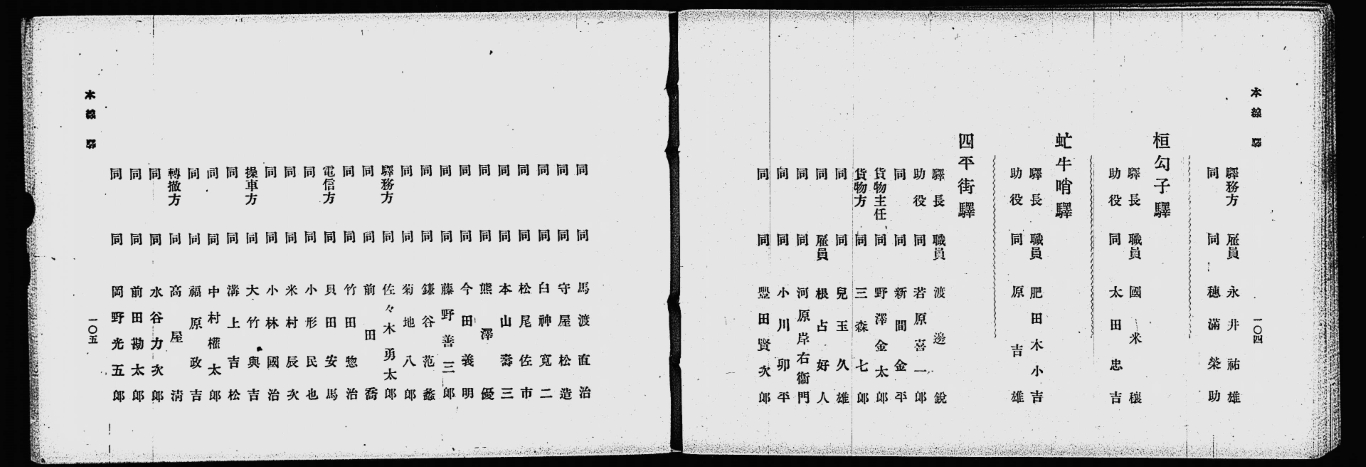 本線驛
一〇四
驛務方 雇員 永井祐雄
同 同 穗滿榮助
桓勾子驛
驛長 職員 國米穰
助役 同 太田忠吉
虻牛哨驛
驛長 職員 肥田木小吉
助役 同 原吉雄
四平街驛
驛長 職員 渡邊銳
助役 同 若原喜一郎
同 同 新間金平
貨物主任 同 野澤金太郎
貨物方 同 三森七郎
同 同 兒玉久雄
同 雇員 根占好人
同 同 河原岸右衞門
同 同 小川卯平
同 同 豐田賢次郎
同 同 馬渡直治
同 同 守屋松造
同 同 臼神寬二
同 同 松尾佐市
同 同 本山壽三
同 同 熊澤優
同 同 今田義明
同 同 藤野善三郎
同 同 鎌谷范蠡
同 同 菊地八郎
驛務方 同 佐々木勇太郎
同 同 前田喬
同 同 竹田惣治
電信方 同 貝田安馬
同 同 小形民也
同 同 米村辰次
同 同 小林國治
操車方 同 大竹與吉
同 同 溝上吉松
同 同 中村權太郎
同 同 福原政吉
轉撤方 同 高屋淸
同 同 水谷力次郎
同 同 前田勘太郎
同 同 岡野光五郎
本線驛
一〇五